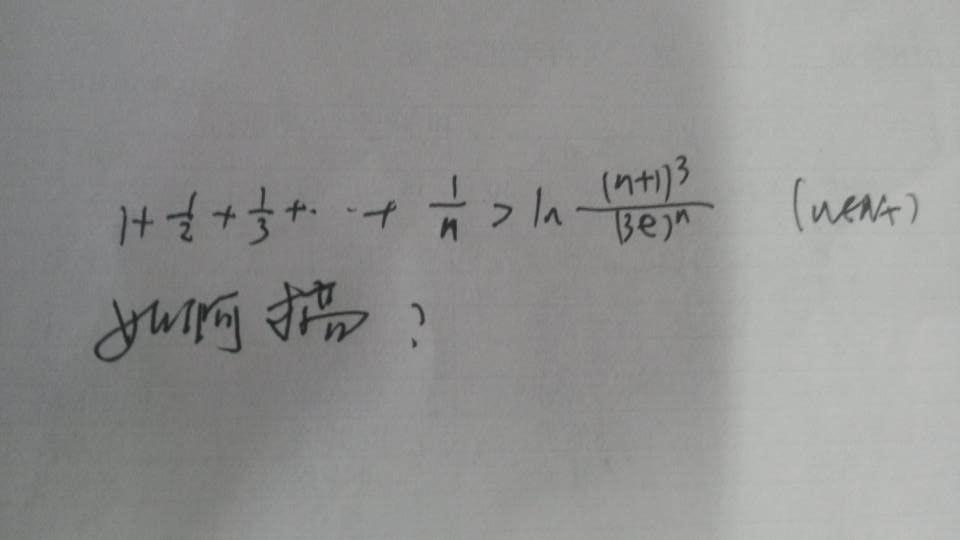 1+1/2+1/3+···+1/n>ln (n+1)^3/(3e)^n (n∈N+)
如何?